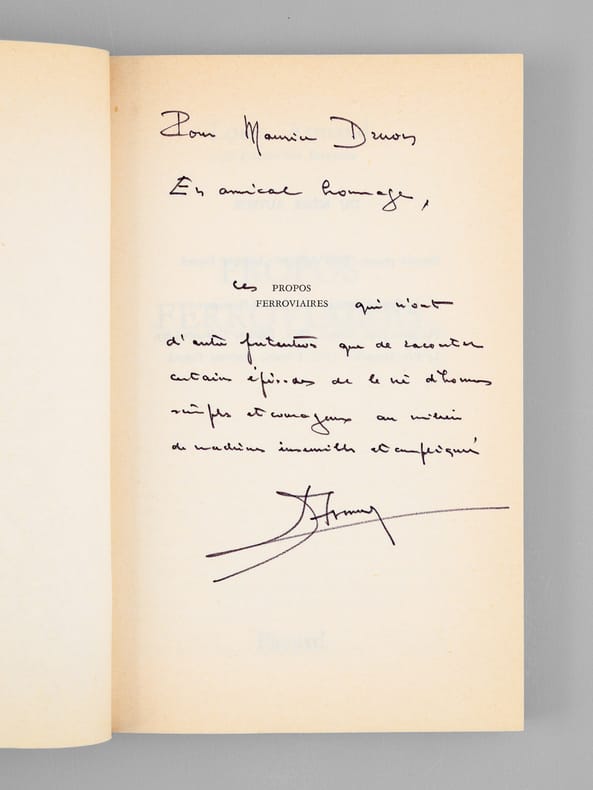 Pour Maurice Druon
En amical hommage,
ces PROPOS
FERROVIAIRES qui n'ont
d'autre prétention que de raconter
certains épisodes de la vie d'hommes
simples et courageux au milieu
de machines insensibles et compliquées
Fayard